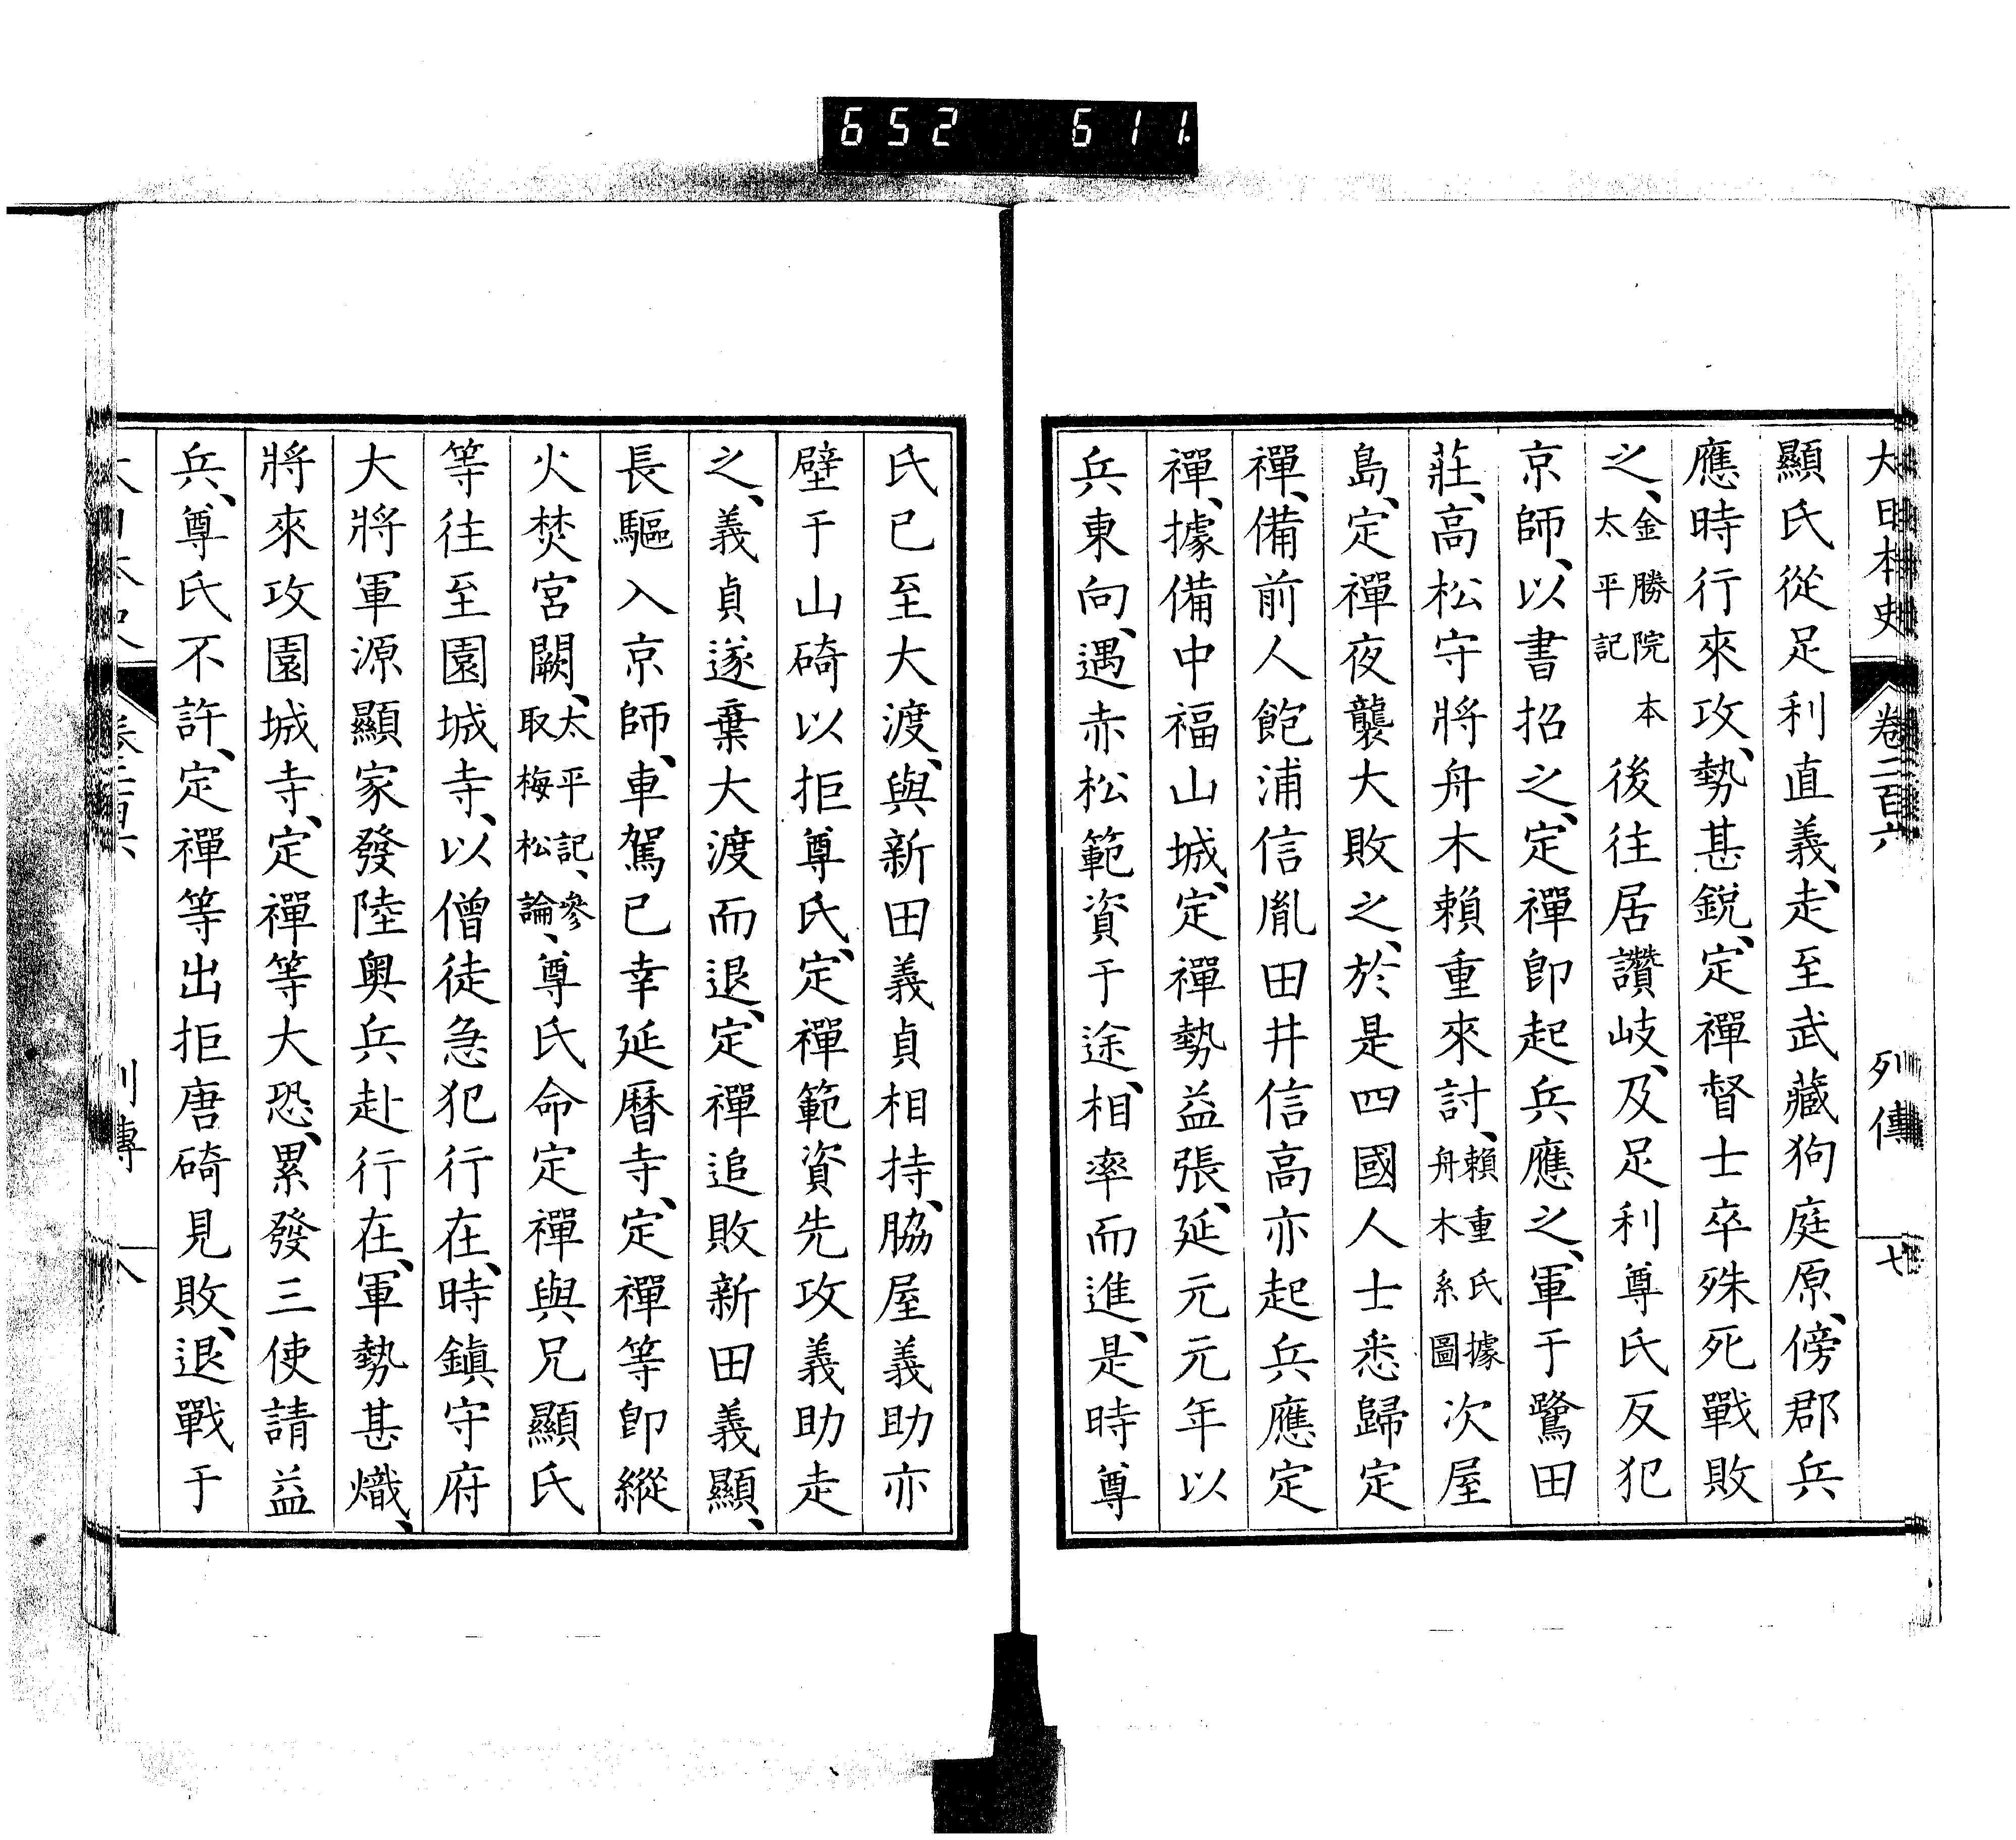 652 611
大日本史 卷二百六 列傳 七
顯氏從足利直義、走至武藏狗庭原、傍郡兵
應時行來攻、勢甚銳、定禪督士卒殊死戰敗
之、金勝院本太平記後往居讚岐、及足利尊氏反犯
京師、以書招之、定禪卽起兵應之、軍于鷺田
莊、高松守將舟木賴重來討、賴重氏據舟木系圖次屋
島、定禪夜襲大敗之、於是四國人士悉歸定
禪、備前人飽浦信胤田井信高亦起兵應定
禪、據備中福山城、定禪勢益張、延元元年以
兵東向、遇赤松範資于途、相率而進、是時尊
氏已至大渡、與新田義貞相持、脇屋義助亦
壁于山碕以拒尊氏、定禪範資先攻義助走
之、義貞遂棄大渡而退、定禪追敗新田義顯、
長驅入京師、車駕已幸延曆寺、定禪等卽縱
火焚宮闕、太平記、參取梅松論、尊氏命定禪與兄顯氏
等往至園城寺、以僧徒急犯行在、時鎭守府
大將軍源顯家發陸奧兵赴行在、軍勢甚熾、
將來攻園城寺、定禪等大恐、累發三使請益
兵、尊氏不許、定禪等出拒唐碕見敗、退戰于